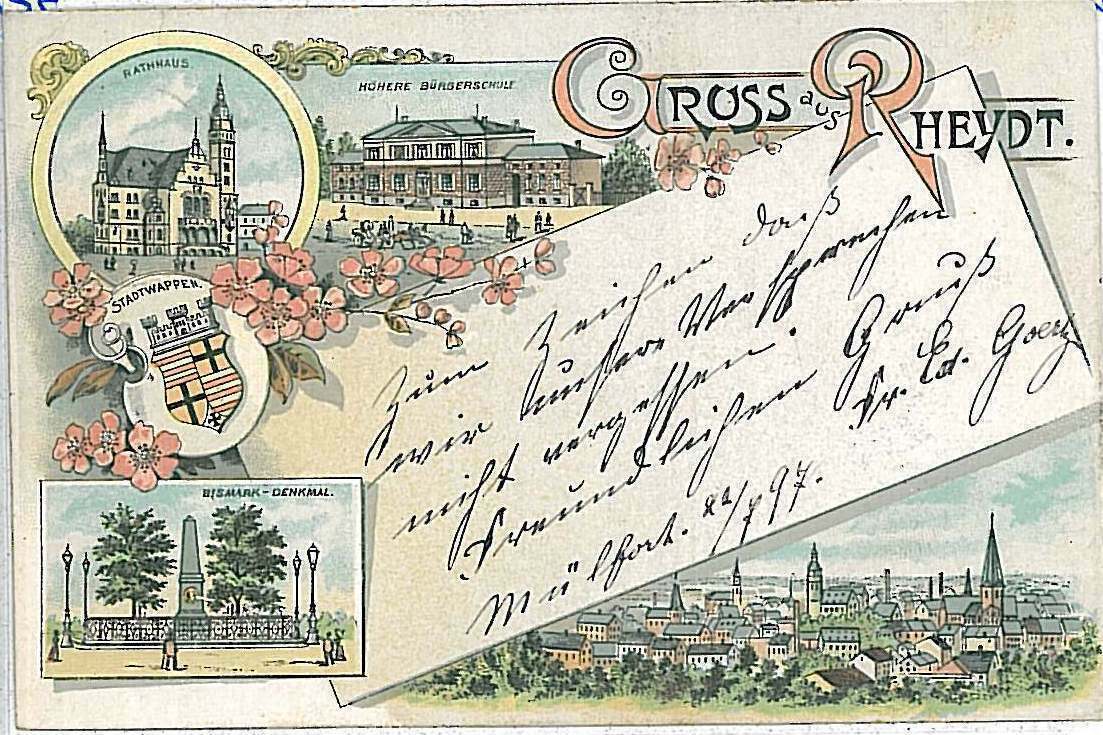 RATHHAUS.
HÖHERE BÜRGERSCHULE
GRUSS aus RHEYDT.
STADTWAPPEN.
BISMARK-DENKMAL.
Zum Zeichen daß
wir unser Versprechen
nicht vergessen.
Freundlichen Gruß
Fr. Ed. Goertz
Mülfort. 22/7 97.